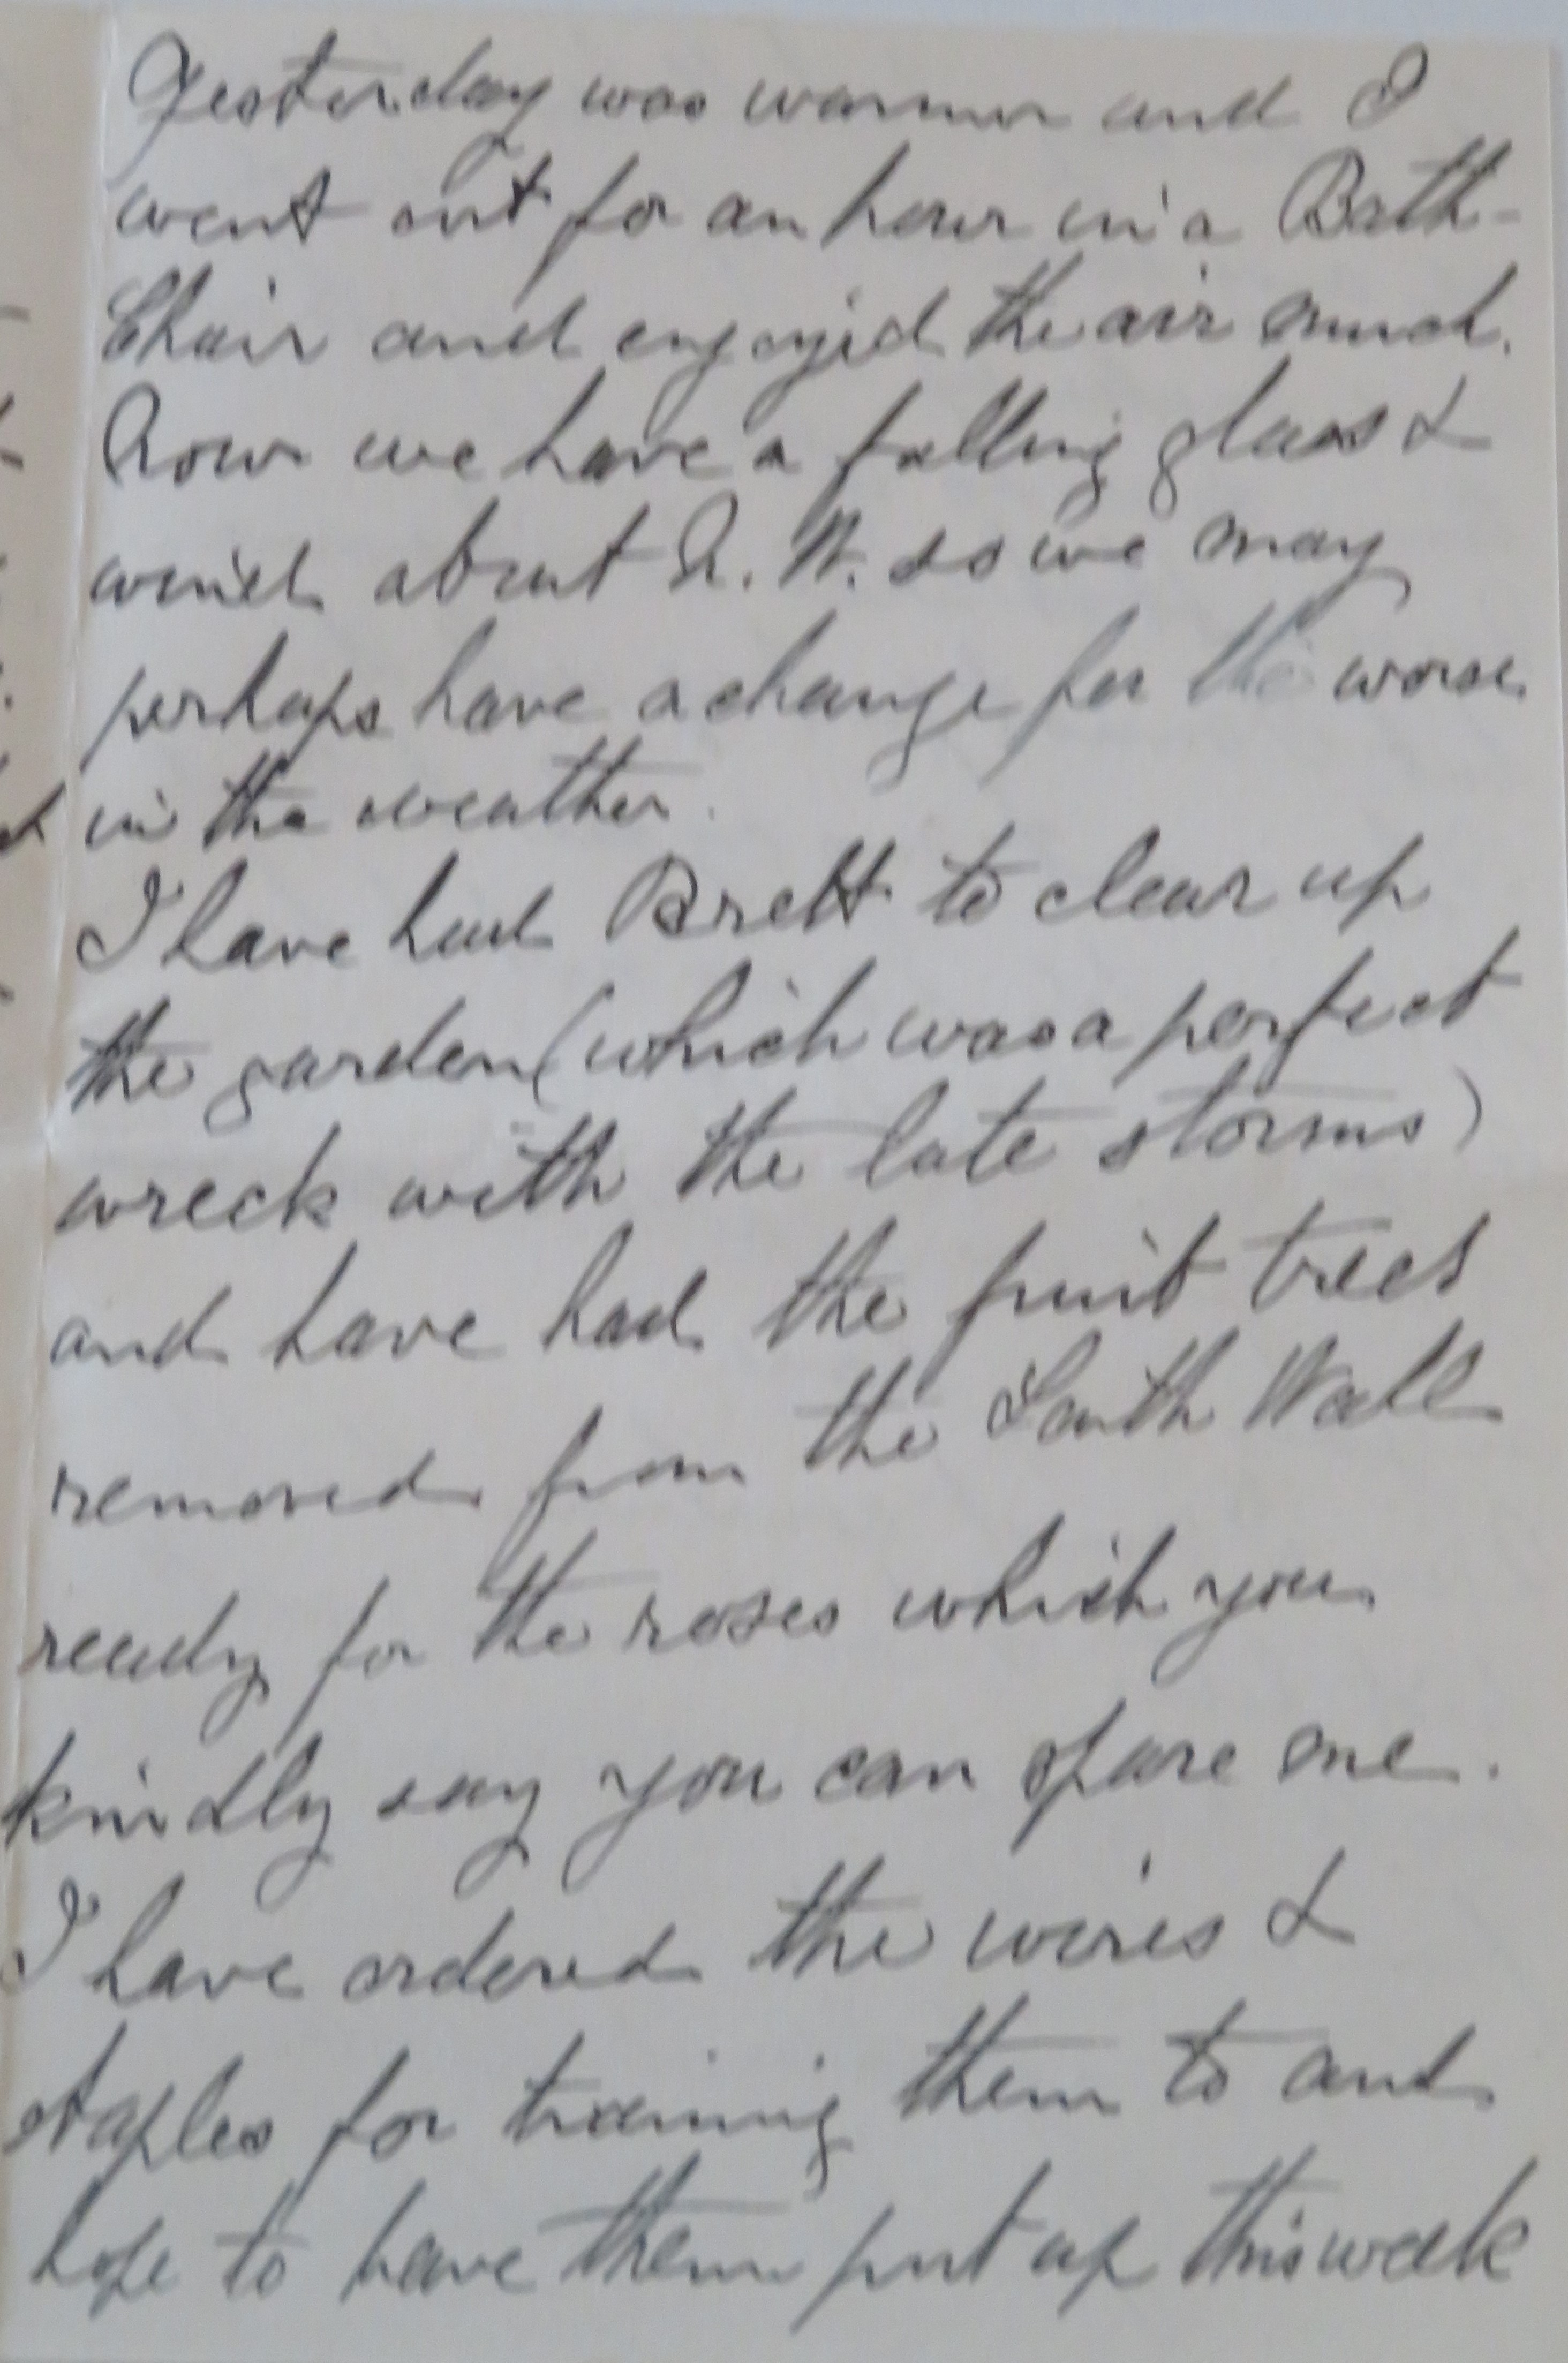 Yesterday was warmer and I
went out for an hour in a Bath-
Chair and enjoyed the air much.
Now we have a falling glass &
wind about N. W. so we may
perhaps have a change for the worse
in the weather.
I have had Brett to clear up
the garden (which was a perfect
wreck with the late storms)
and have had the fruit trees
removed from the South Wall
ready for the roses which you
kindly say you can spare me.
I have ordered the wires &
staples for training them to and
hope to have them put up this week